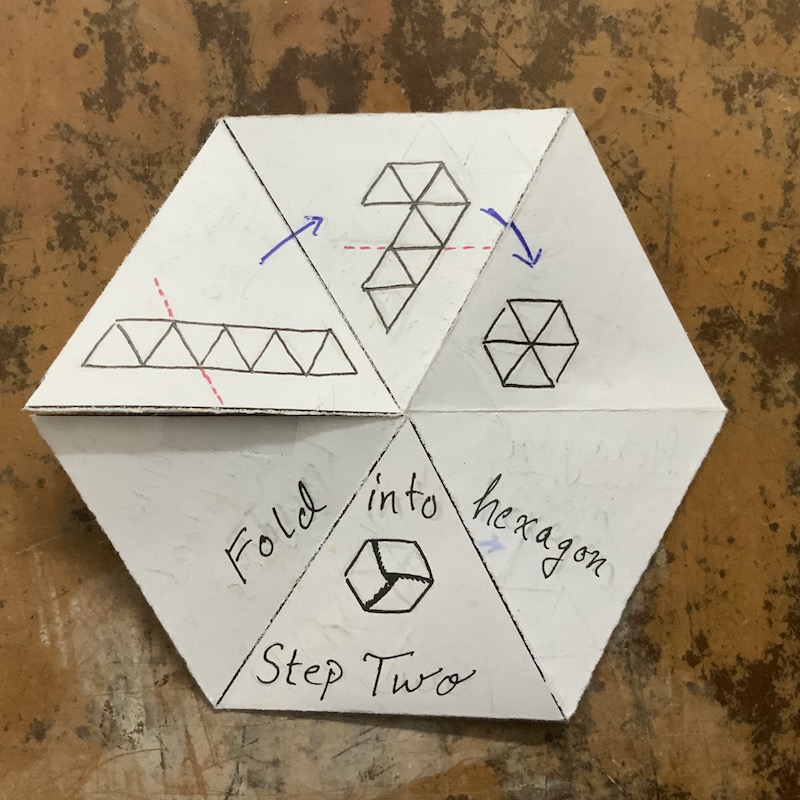 Fold into hexagon
Step Two